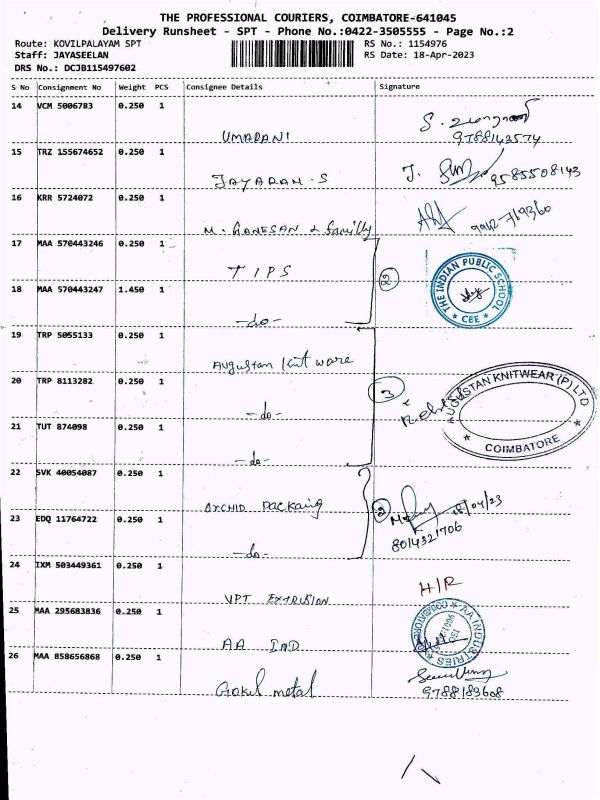 THE PROFESSIONAL COURIERS, COIMBATORE-641045
Delivery Runsheet - SPT - Phone No.:0422-3505555 - Page No.:2
Route: KOVILPALAYAM SPT RS No.: 1154976
Staff: JAYASEELAN RS Date: 18-Apr-2023
DRS No.: DCJB115497602
S No Consignment No Weight PCS Consignee Details Signature
14 VCM 5006783 0.250 1
UMARANI 9788143574
15 TRZ 155674652 0.250 1
JAYARAM.S J. 9585508143
16 KRR 5724072 0.250 1
M. GANESAN & family
17 MAA 570443246 0.250 1
TIPS
THE INDIAN PUBLIC SCHOOL
* CBE *
18 MAA 570443247 1.450 1
-do-
19 TRP 5055133 0.250 1
Augustan knit ware
20 TRP 8113282 0.250 1
3
AUGUSTAN KNITWEAR (P) LTD
COIMBATORE
-do-
21 TUT 874098 0.250 1
-do-
22 SVK 40054087 0.250 1
ORCHID Packaing
2
18/04/23
8014321706
23 EDQ 11764722 0.250 1
-do-
24 IXM 503449361 0.250 1
H/R
VPT EXTRUSION
25 MAA 295683836 0.250 1
AA INDUSTRIES
AA IND
26 MAA 858656868 0.250 1
Gokul metal 9788183608